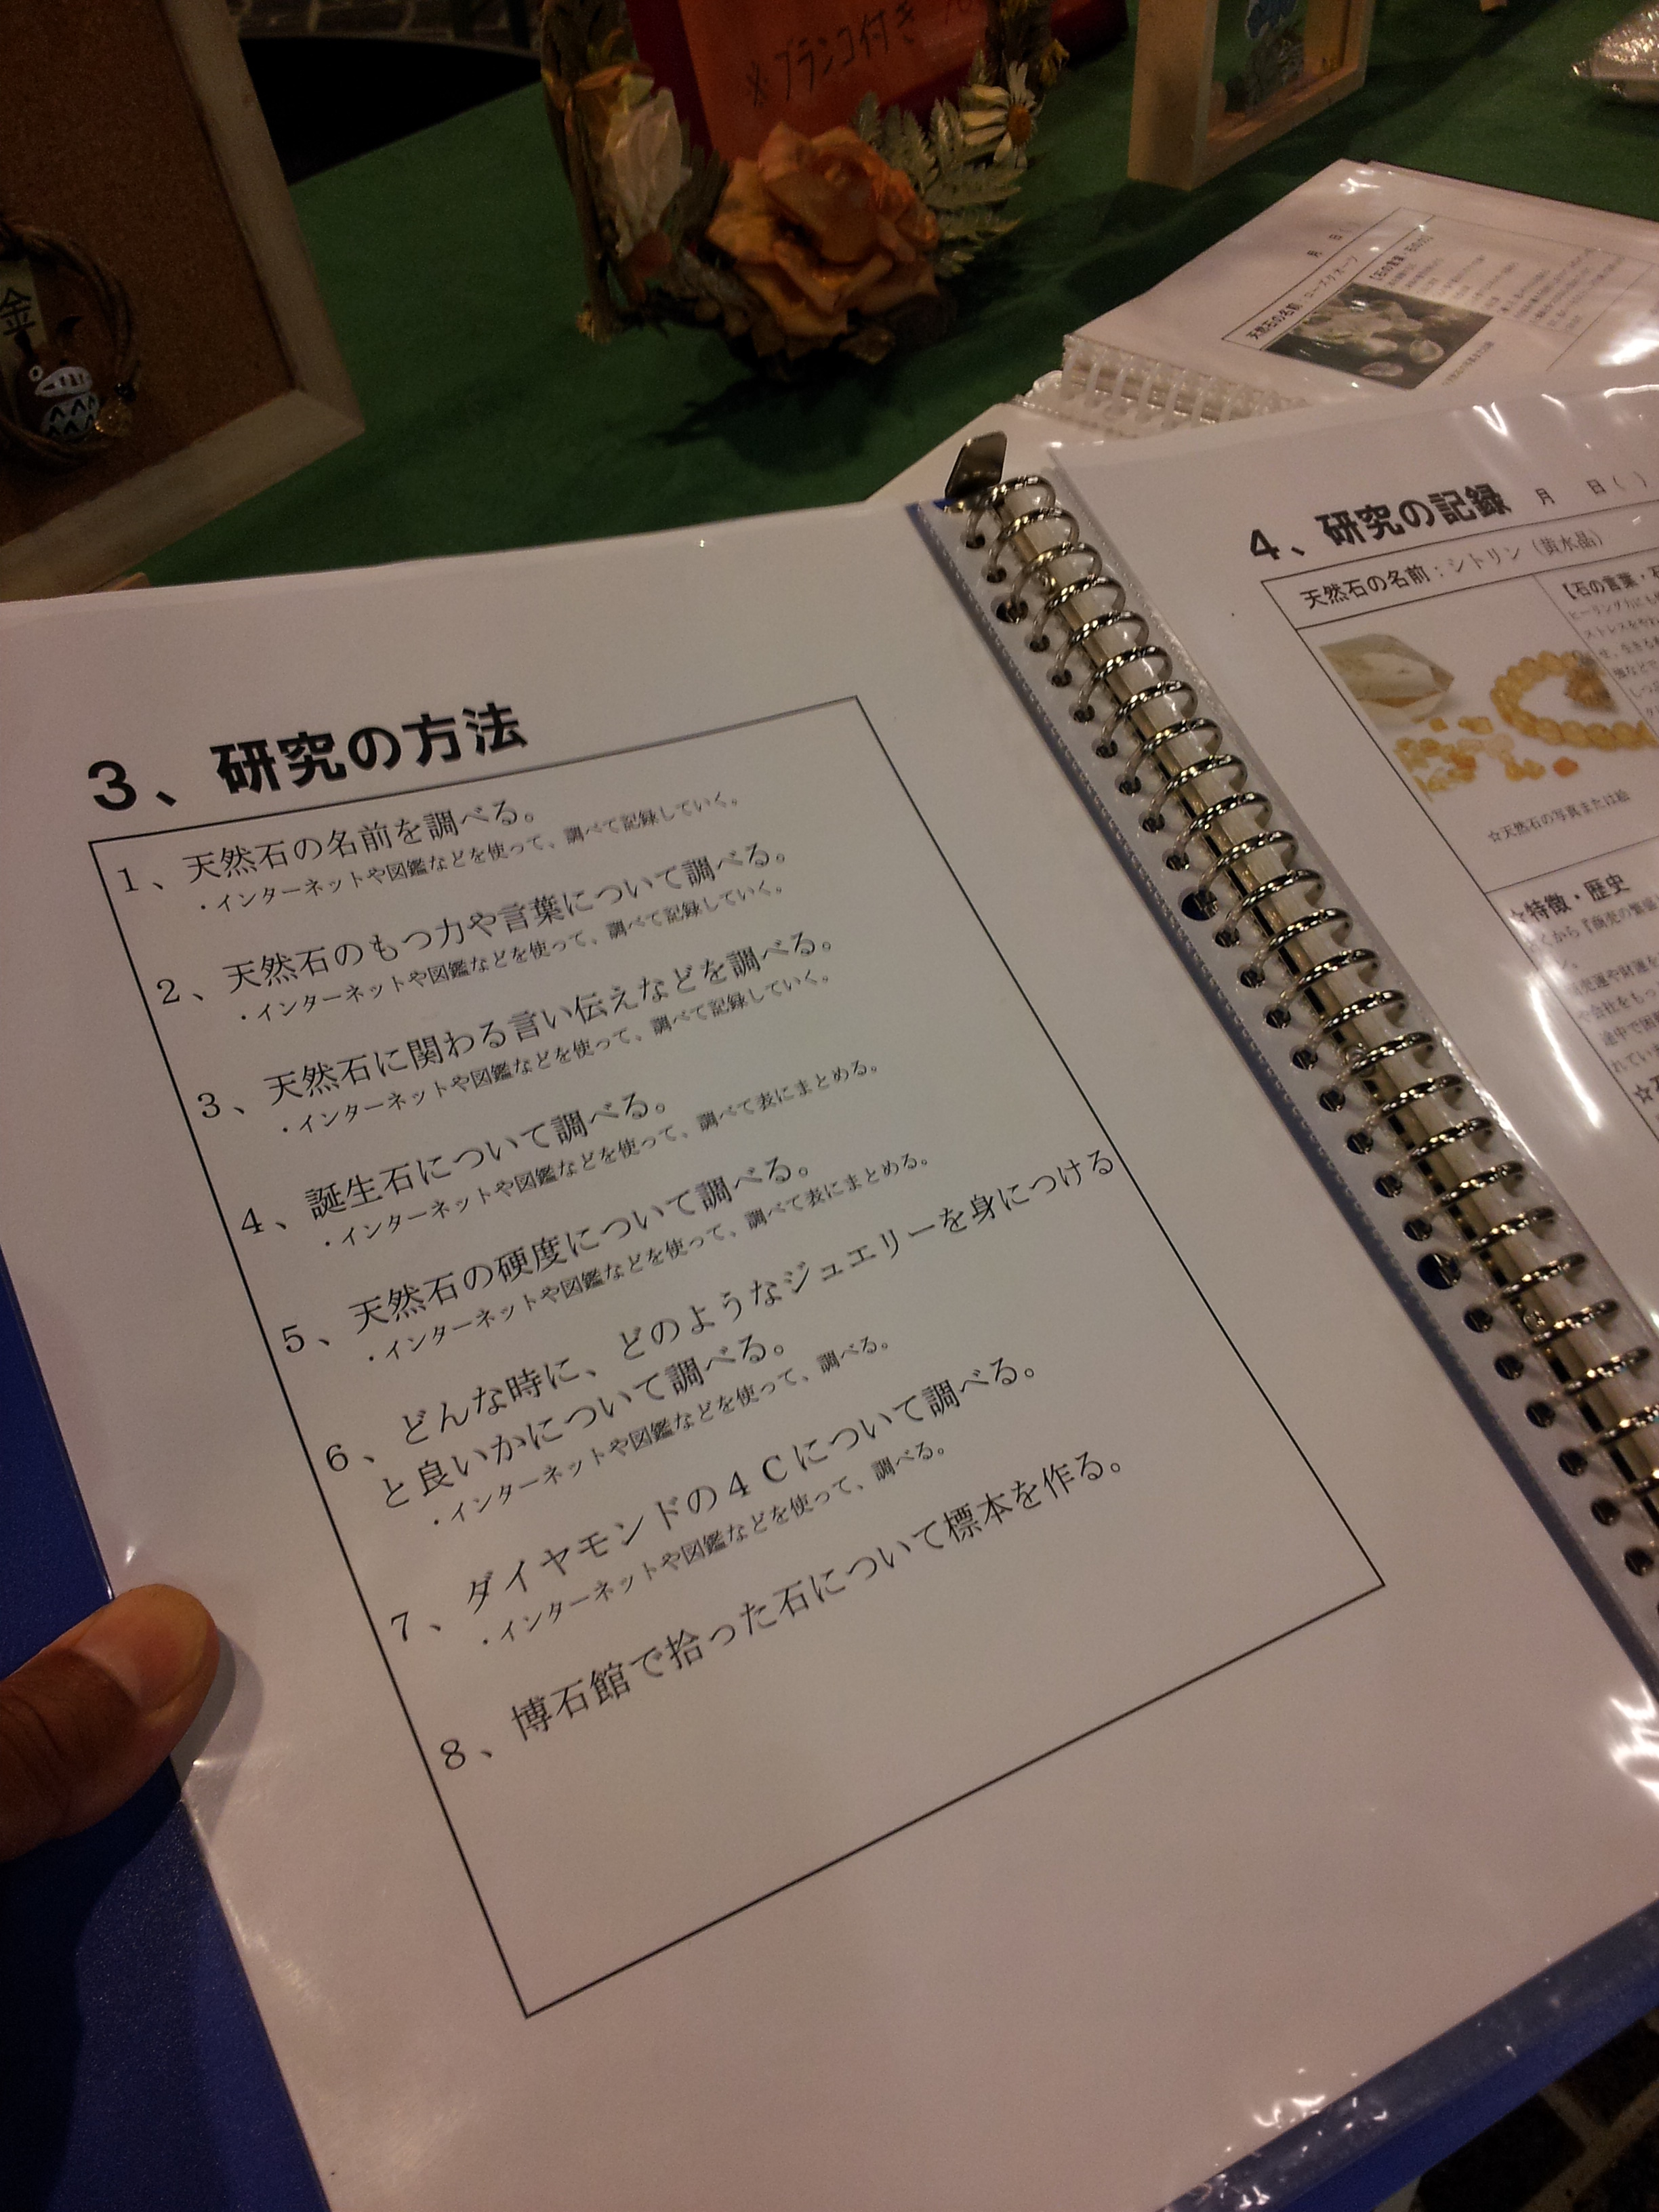 ※ブランコ付き
金
3、研究の方法
1、天然石の名前を調べる。
・インターネットや図鑑などを使って、調べて記録していく。
2、天然石のもつ力や言葉について調べる。
・インターネットや図鑑などを使って、調べて記録していく。
3、天然石に関わる言い伝えなどを調べる。
・インターネットや図鑑などを使って、調べて記録していく。
4、誕生石について調べる。
・インターネットや図鑑などを使って、調べて表にまとめる。
5、天然石の硬度について調べる。
・インターネットや図鑑などを使って、調べて表にまとめる。
6、どんな時に、どのようなジュエリーを身につける
と良いかについて調べる。
・インターネットや図鑑などを使って、調べる。
7、ダイヤモンドの4Cについて調べる。
・インターネットや図鑑などを使って、調べる。
8、博石館で拾った石について標本を作る。
4、研究の記録 月 日( )
天然石の名前:シトリン(黄水晶)
【石の言葉・石
☆天然石の写真または絵
☆特徴・歴史
月 日(
天然石の名前:ローズクオーツ